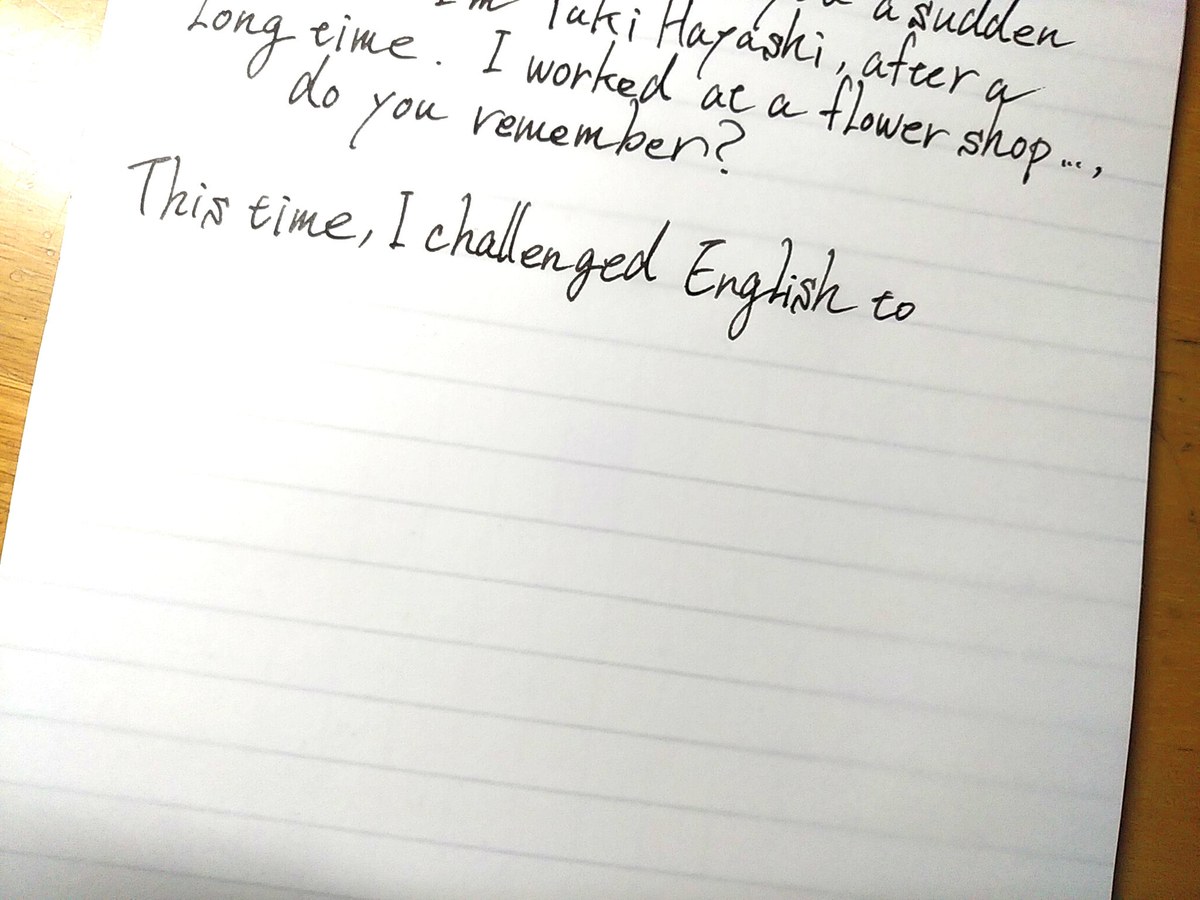 a sudden
I'm Yuki Hayashi, after a
long time. I worked at a flower shop...,
do you remember?
This time, I challenged English to